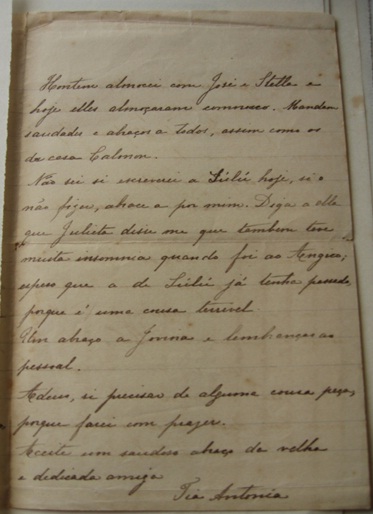 Hontem almocei com José e Stella e
hoje elles almoçaram comnosco. Mandam
saudades e abraços a todos, assem como os
da casa Calmon.
Não sei si escreverei a Lúlú hoje, si o
não fizer, abrace a por mim. Diga a elle
que Julieta disse me que tambem teve
muita insomnia quando foi ao Angica;
espero que a de Lúlú já tenha passado,
porque é uma cousa terrivel.
Um abraço a Jonina e lembranças ao
pessoal.
Adeus, si precisar de alguma cousa peça,
porque farei com prazer.
Aceite um saudoso abraço da velha
e dedicada amiga
Tia Antonia